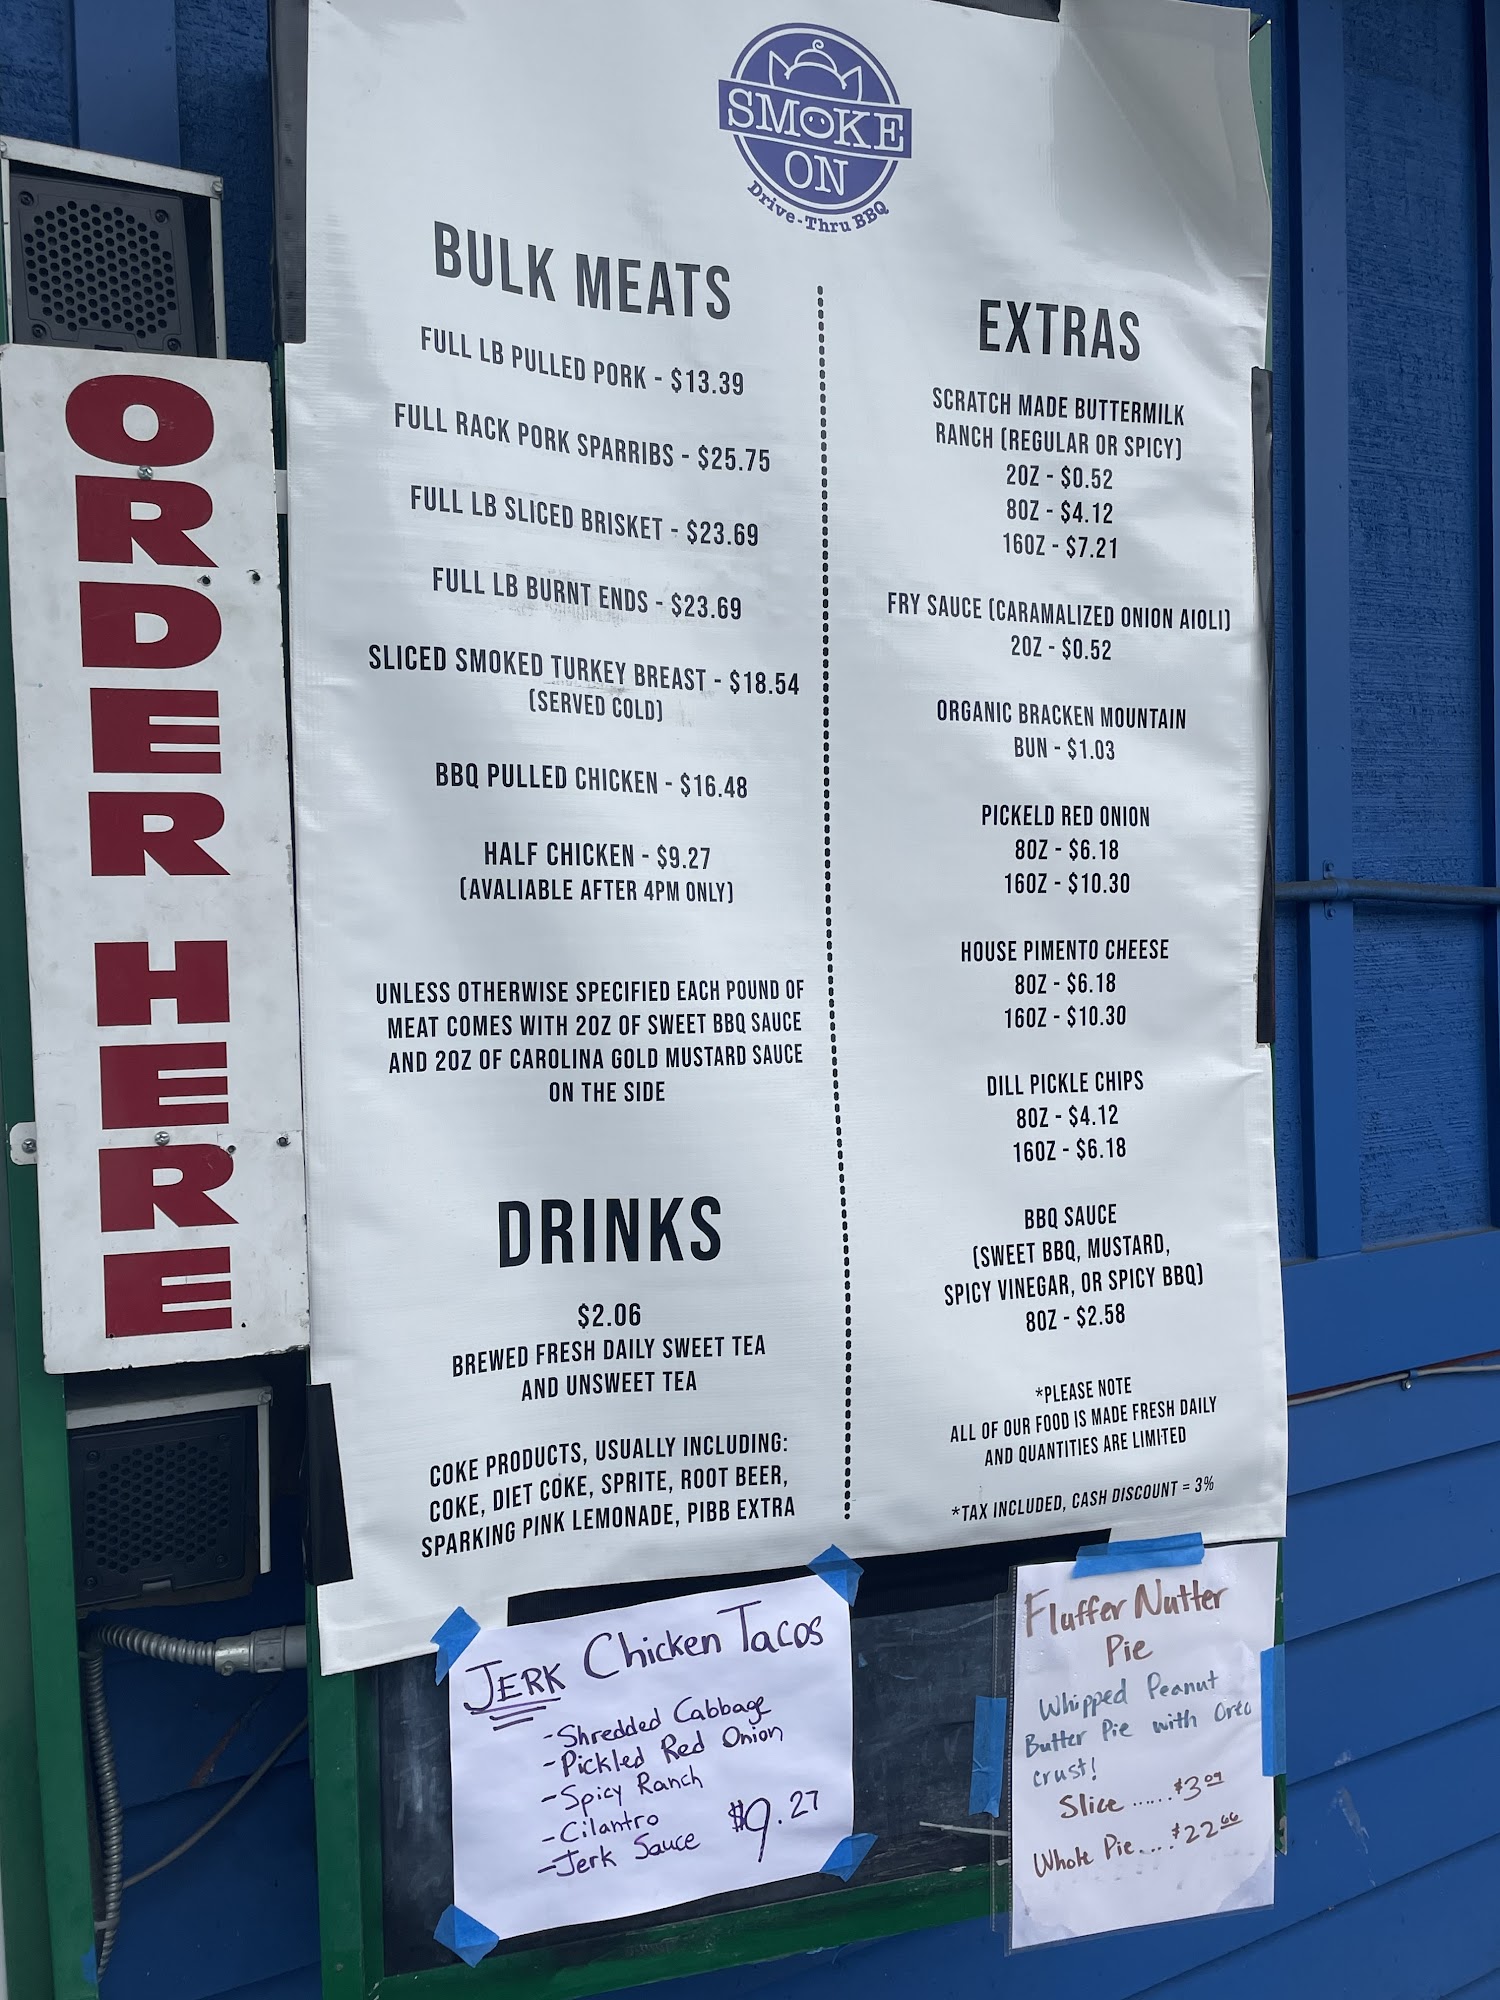 SMOKE
ON
Drive-Thru BBQ
ORDER HERE
BULK MEATS
FULL LB PULLED PORK - $13.39
FULL RACK PORK SPARRIBS - $25.75
FULL LB SLICED BRISKET - $23.69
FULL LB BURNT ENDS - $23.69
SLICED SMOKED TURKEY BREAST - $18.54
(SERVED COLD)
BBQ PULLED CHICKEN - $16.48
HALF CHICKEN - $9.27
(AVALIABLE AFTER 4PM ONLY)
UNLESS OTHERWISE SPECIFIED EACH POUND OF
MEAT COMES WITH 2OZ OF SWEET BBQ SAUCE
AND 2OZ OF CAROLINA GOLD MUSTARD SAUCE
ON THE SIDE
DRINKS
$2.06
BREWED FRESH DAILY SWEET TEA
AND UNSWEET TEA
COKE PRODUCTS, USUALLY INCLUDING:
COKE, DIET COKE, SPRITE, ROOT BEER,
SPARKING PINK LEMONADE, PIBB EXTRA
EXTRAS
SCRATCH MADE BUTTERMILK
RANCH (REGULAR OR SPICY)
2OZ - $0.52
8OZ - $4.12
16OZ - $7.21
FRY SAUCE (CARAMALIZED ONION AIOLI)
2OZ - $0.52
ORGANIC BRACKEN MOUNTAIN
BUN - $1.03
PICKELD RED ONION
8OZ - $6.18
16OZ - $10.30
HOUSE PIMENTO CHEESE
8OZ - $6.18
16OZ - $10.30
DILL PICKLE CHIPS
8OZ - $4.12
16OZ - $6.18
BBQ SAUCE
(SWEET BBQ, MUSTARD,
SPICY VINEGAR, OR SPICY BBQ)
8OZ - $2.58
*PLEASE NOTE
ALL OF OUR FOOD IS MADE FRESH DAILY
AND QUANTITIES ARE LIMITED
*TAX INCLUDED, CASH DISCOUNT = 3%
JERK Chicken Tacos
- Shredded Cabbage
- Pickled Red Onion
- Spicy Ranch
- Cilantro
- Jerk Sauce $9.27
Fluffer Nutter
Pie
Whipped Peanut
Butter Pie with Oreo
crust!
Slice ...... $3.09
Whole Pie.... $22.66